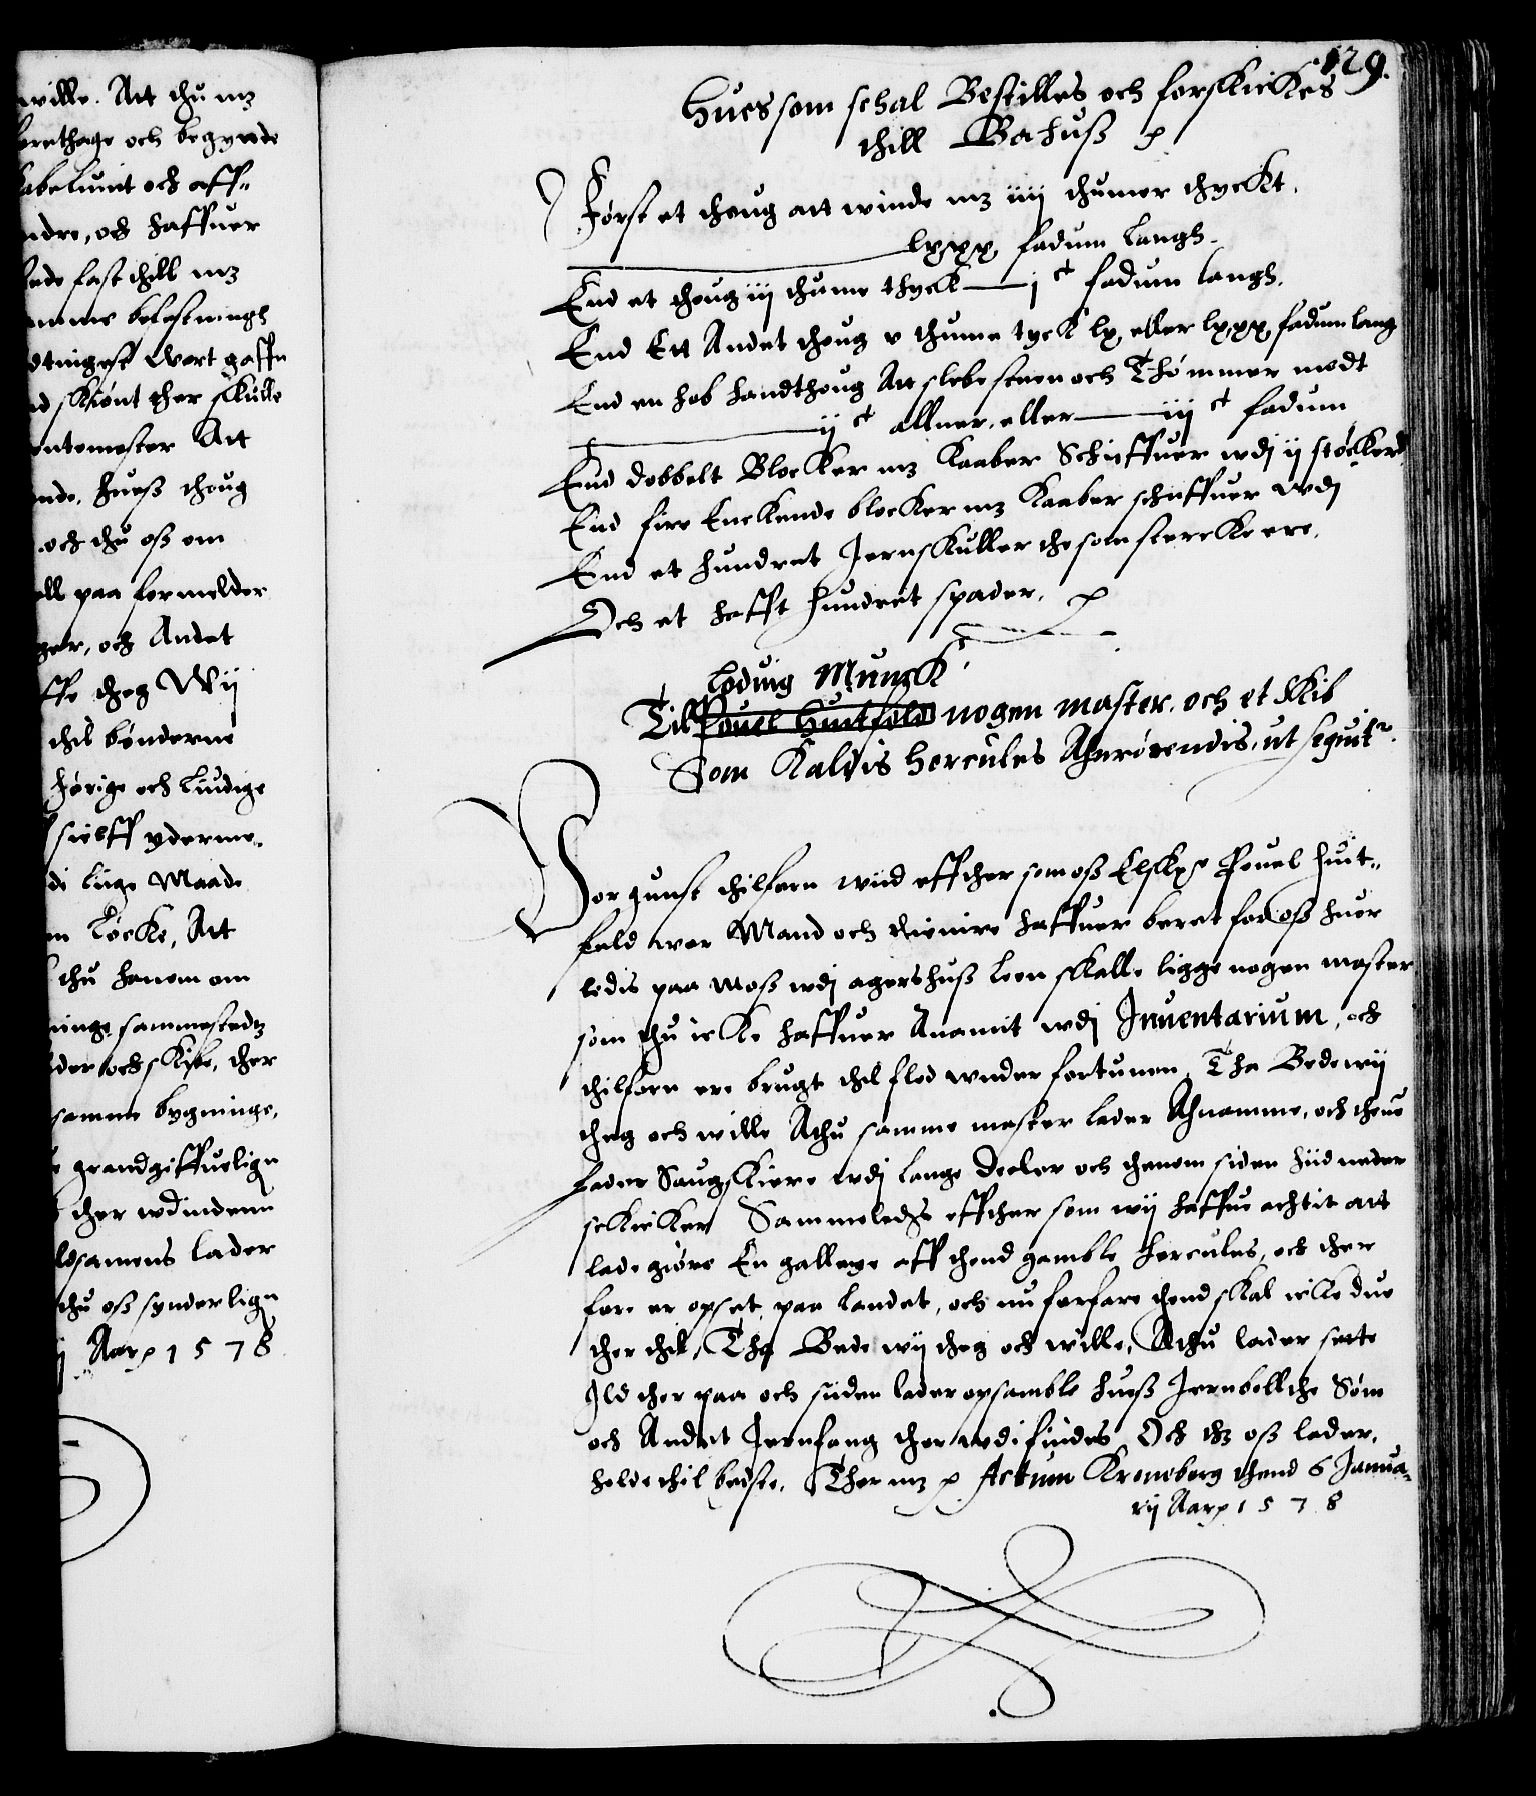 wille. Att thu mz
forethage och begynde
och aff-
andre, och haffuer
fast thill mz
befestningh
Wort gaffn
skiønt ther skulle
Rentemester Att
hueß thoug
och thu oß om
paa formelder
och Andet
theg Wij
thil bønderne
hørige och liudige
sielff yderme-
lige Maade
Løcke, Att
thu hanom om
sammestedtz
och skibe, ther
samme bygninge,
grandgiffueligen
ther wdindenn
lader
thu oß synderligen
Aar p 1578
129.
Hues som schal Bestilles och forskickes
thill Bahuß p
Først et thoug att winde mz iiij thumer thyckt,
lxxx fadum langh.
End et thoug iij thume thyck — j ct fadum langh.
End Ett Andet thoug v thume tyck lx eller lxxx fadum lang
End en hob handthoug Att slebe stenen och Thømmer medt
ij ct allner, eller — iij ct fadum
End dobbelt Blocker mz Kaaber Schiffuer wdj ij støcker
End fire Enckende blocker mz Kaaber schiffuer wdj
End et hundret Jernskuller the som stercke ere,
Och et halfft hundret spader, p
Lodvig Munck
Till Pouel Huitfeld nogen master, och et skib
Som Kaldis Hercules Ahnrørendis, ut sequitr.
Vor gunst thilforn wiid effther som oß Elskl. Pouel Huit-
feld wor Mand och thienire haffuer beret for oß huor
ledis paa Moß wdj Agershuß Leen skalle ligge nogen master
som thu icke haffuer Anamit wdj Inuentarium, och
thilforn ere brugt thil flod wnder fortunen, Tha Bede wij
theg och wille Athu samme master lader Ahnamme, och thenne
lader Saugskiere wdj lange Deeler och thenom siden hiid neder
schicker Sammeledis effther som wij haffue achtit att
lade giøre En galleye aff thend gamble Hercules, och ther
fore er opset paa landet, och nu forfare thend skal icke due
ther thil, Tha Bede wij theg och wille, Athu lader sette
Jld ther paa och siiden lader opsamble hueß Jernbollthe Søm
och Andet Jernfang ther wdi findes Och thz oß lader,
holde thil bedste. Ther mz p Actum Kroneborg thend 6 Janua-
rij Aar p 1578